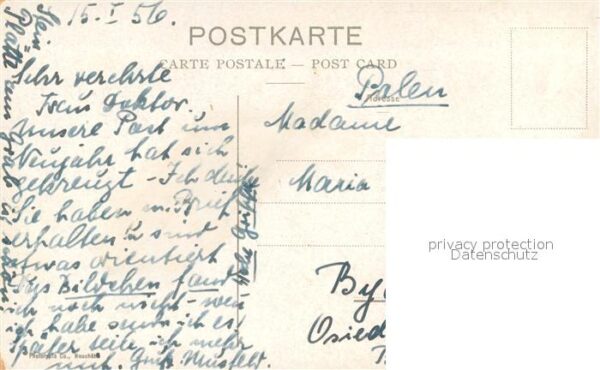 15. I 56.
POSTKARTE
CARTE POSTALE — POST CARD
Sehr verehrte
Frau Doktor.
Unsere Post um
Neujahr hat sich
gekreuzt - Ich denke
Sie haben m. Brief
erhalten u sind
etwas orientiert
Bildchen fand
ich noch nicht - wenn
ich habe sende ich es
später teile ich mehr
mit. Gruß Musfeld.
Polen
Adresse
Madame
Maria
By
Osied
privacy protection
Datenschutz
Co., Neuchâtel